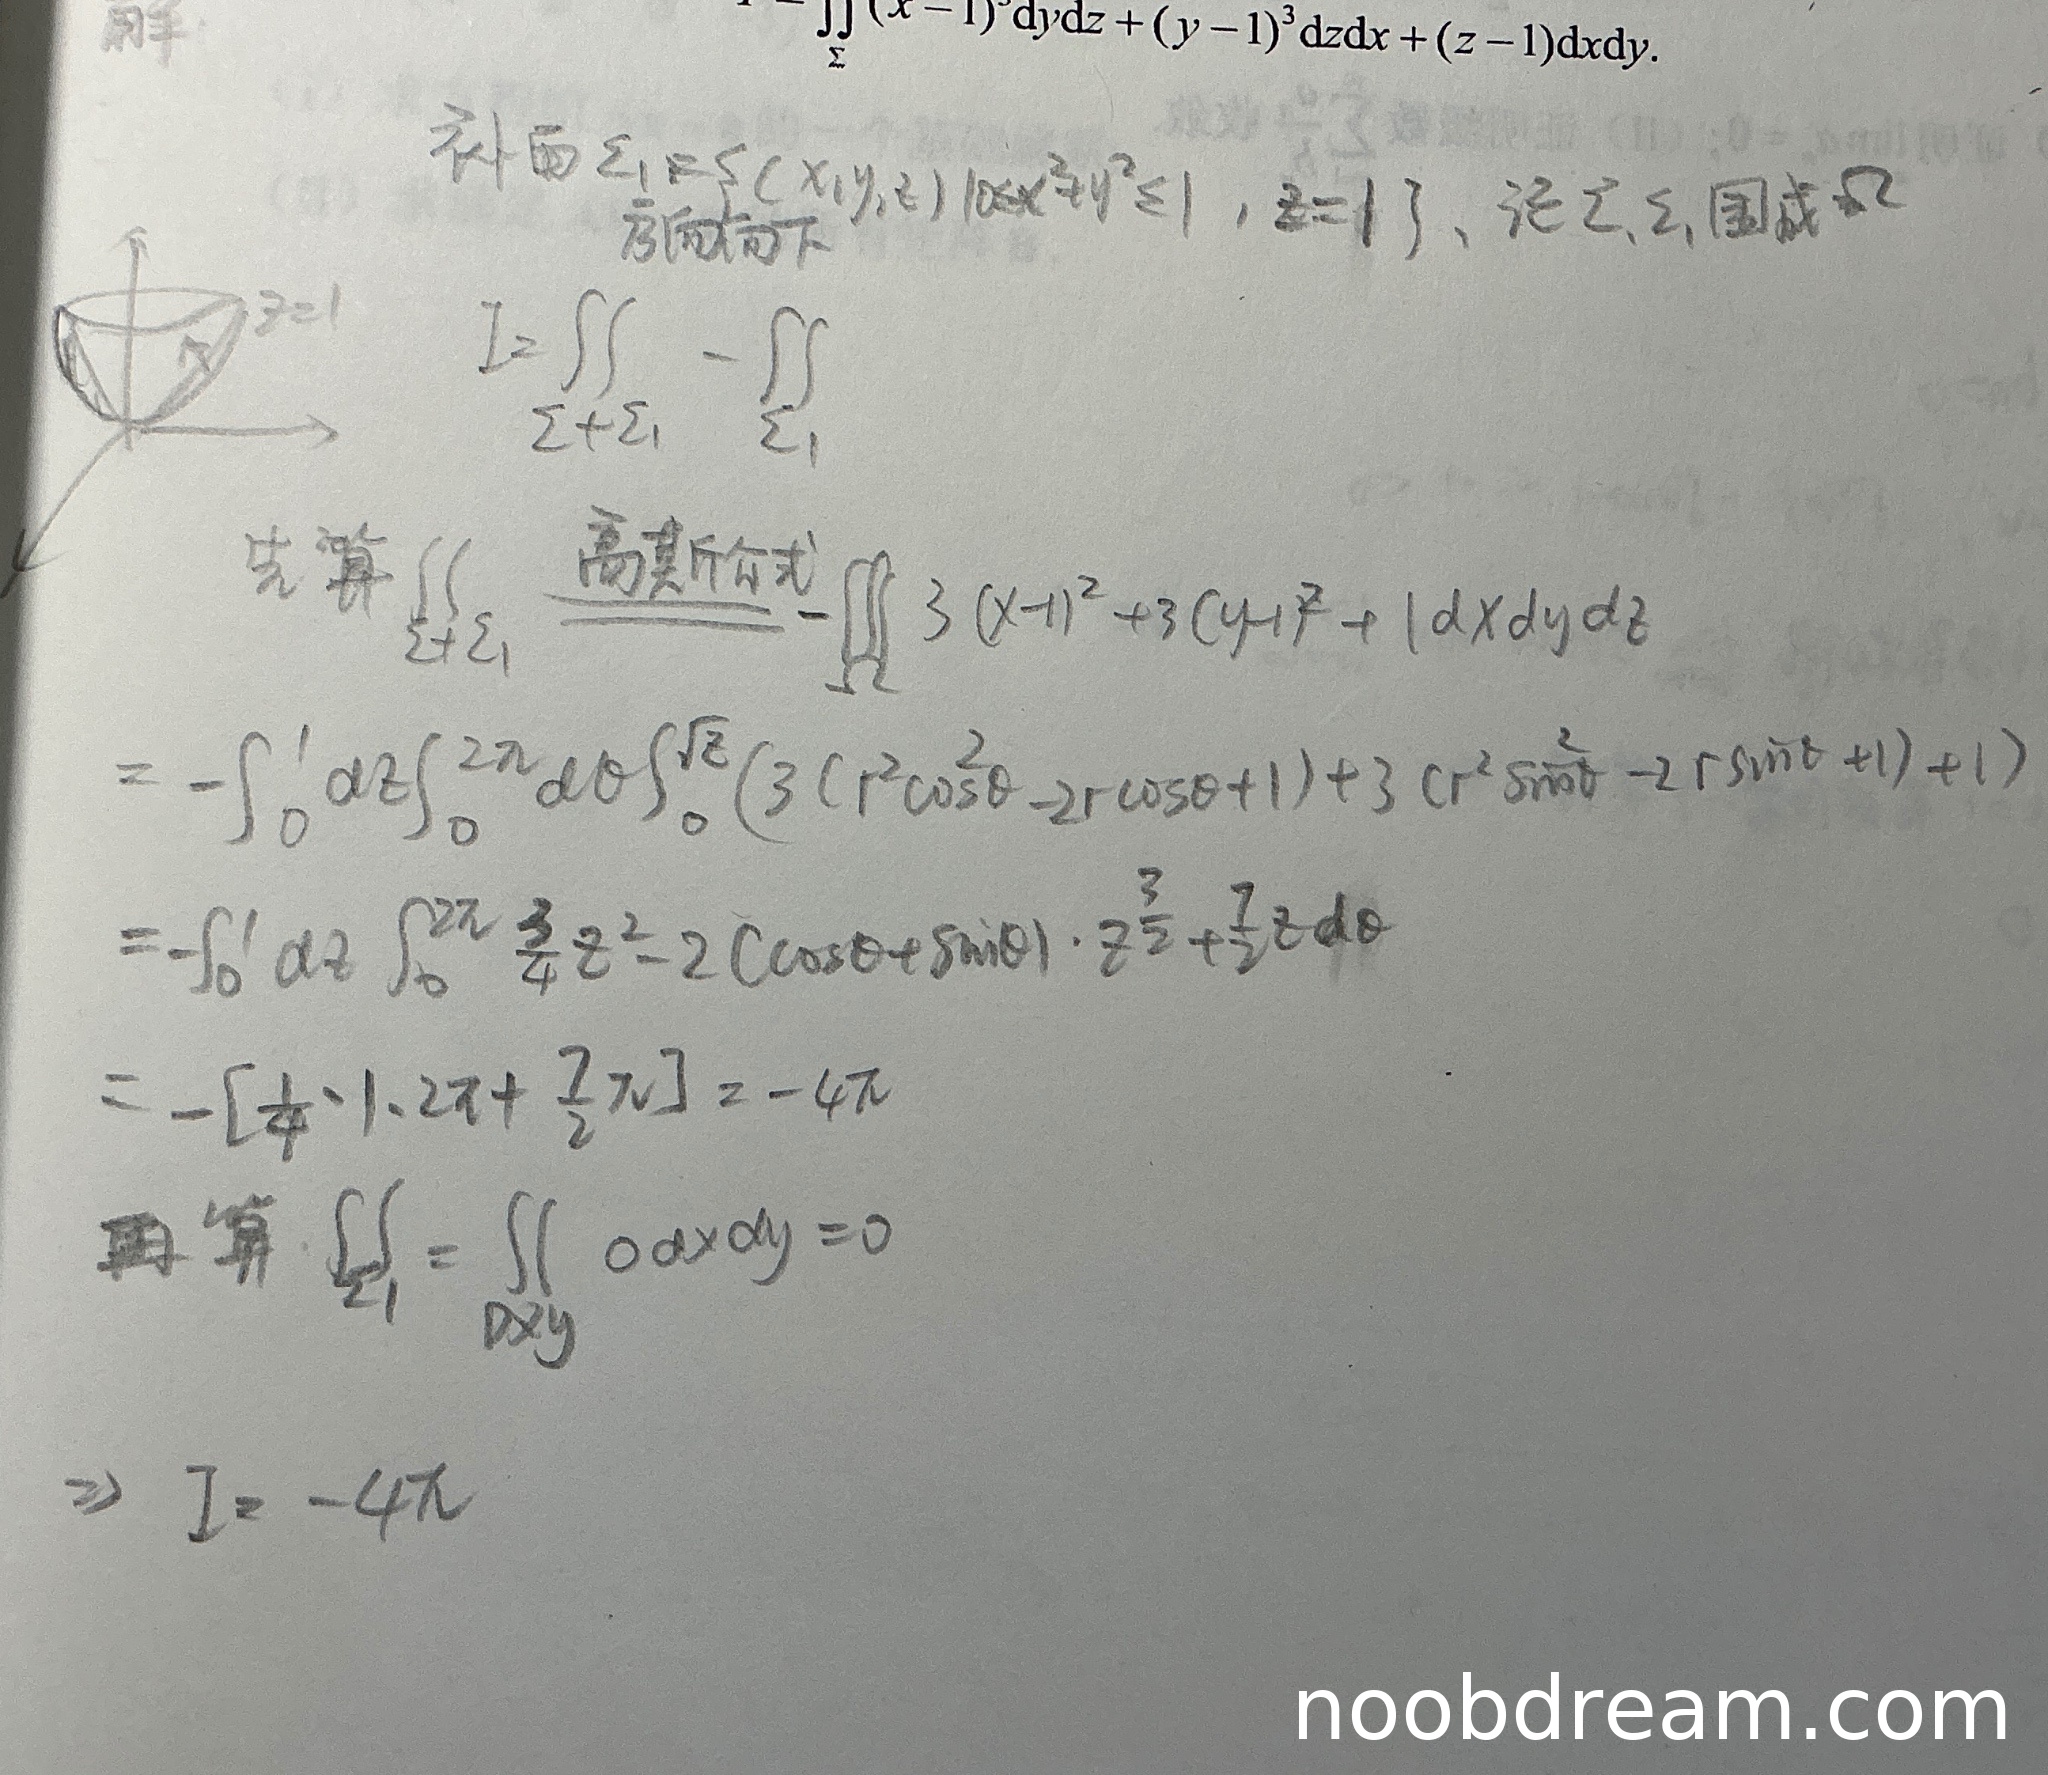 解
I = ∬_Σ (x−1)³dydz + (y−1)³dzdx + (z−1)dxdy.
补面 Σ₁ = {(x,y,z) | 0≤x²+y²≤1, z=1}、记Σ、Σ₁围成Ω
方向向下
z=1
I = ∬_{Σ+Σ₁} − ∬_{Σ₁}
先算 ∬_{Σ+Σ₁} 高斯公式 −∭_Ω 3(x−1)²+3(y−1)²+1dxdydz
= −∫₀¹dz∫₀^{2π}dθ∫₀^{√z}(3(r²cos²θ−2rcosθ+1)+3(r²sin²θ−2rsinθ+1)+1)
= −∫₀¹dz∫₀^{2π} 3/4 z²−2(cosθ+sinθ)·z^{3/2}+7/2 z dθ
= −[1/4·1·2π+7/2 π] = −4π
再算 ∬_{Σ₁} = ∬_{Dxy} 0dxdy = 0
⇒ I = −4π
noobdream.com